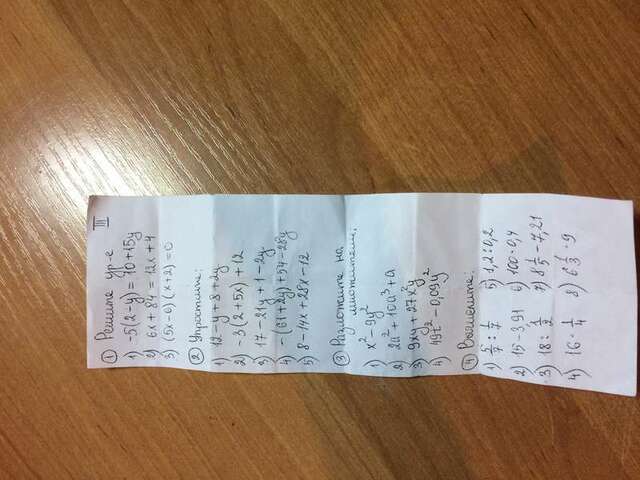 III
① Решите ур-е
1) -5(2-y) = 10+15y
2) 6x + 84 = 12x + 4
3) (5x-6)(x+2) = 0
② Упростите:
1) 12-y+8+2y
2) -3(2+5x) + 12
3) 17-21y+1-2y
4) -(61+2y)+54-28y
5) 8-14x+28x-12
③ Разложите на
множители:
1) x² - 9y²
2) 2a² + 10a³ + a
3) 9xy + 27x²y
4) 49t² - 0,09y²
④ Вычислите:
1) 5/7 : 1/7 5) 1,2 : 0,2
2) 15 - 3,91 6) 100 · 0,4
3) 18 : 1/2 7) 8 1/5 - 7,21
4) 16 · 1/4 8) 6 1/3 · 9